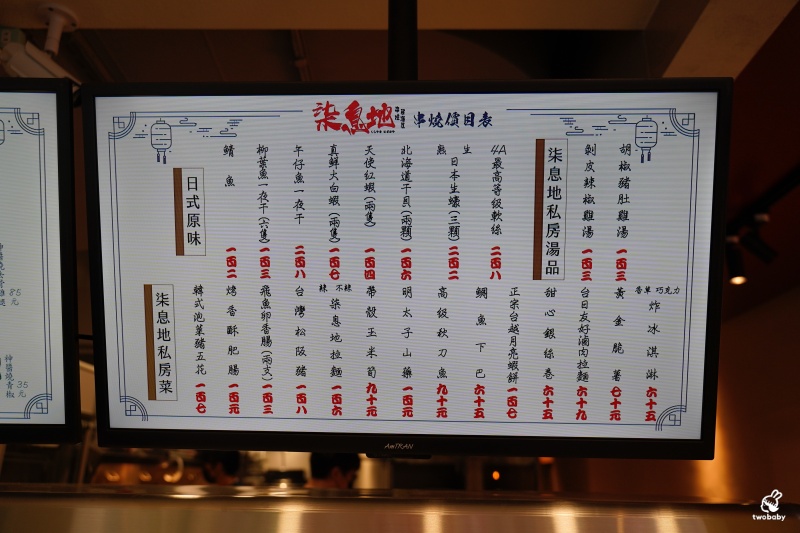 柒息地
串燒價目表
柒息地私房湯品
胡椒豬肚雞湯 一百三
剝皮辣椒雞湯 一百三
日式原味
4A最高等級軟絲 二百八
生 熟 日本生蠔(三顆) 二百二
北海道干貝(兩顆) 一百六
天使紅蝦(兩隻) 一百四
真鮮大白蝦(兩隻) 一百七
午仔魚一夜干 二百八
柳葉魚一夜干(六隻) 一百三
鯖魚 一百二
柒息地私房菜
香草 巧克力 炸冰淇淋 六十五
黃金脆薯 七十元
台日友好滷肉拉麵 六十九
甜心銀絲卷 六十五
正宗台越月亮蝦餅 一百七
鯛魚下巴 六十五
高級秋刀魚 九十元
明太子山藥 一百元
帶殼玉米筍 九十元
辣 不辣 柒息地拉麵 一百六
台灣松阪豬 一百八
飛魚卵香腸(兩支) 一百三
烤香酥肥腸 一百元
韓式泡菜豬五花 一百七
85元
神醬燒青椒 35元
AmTRAN
twobaby